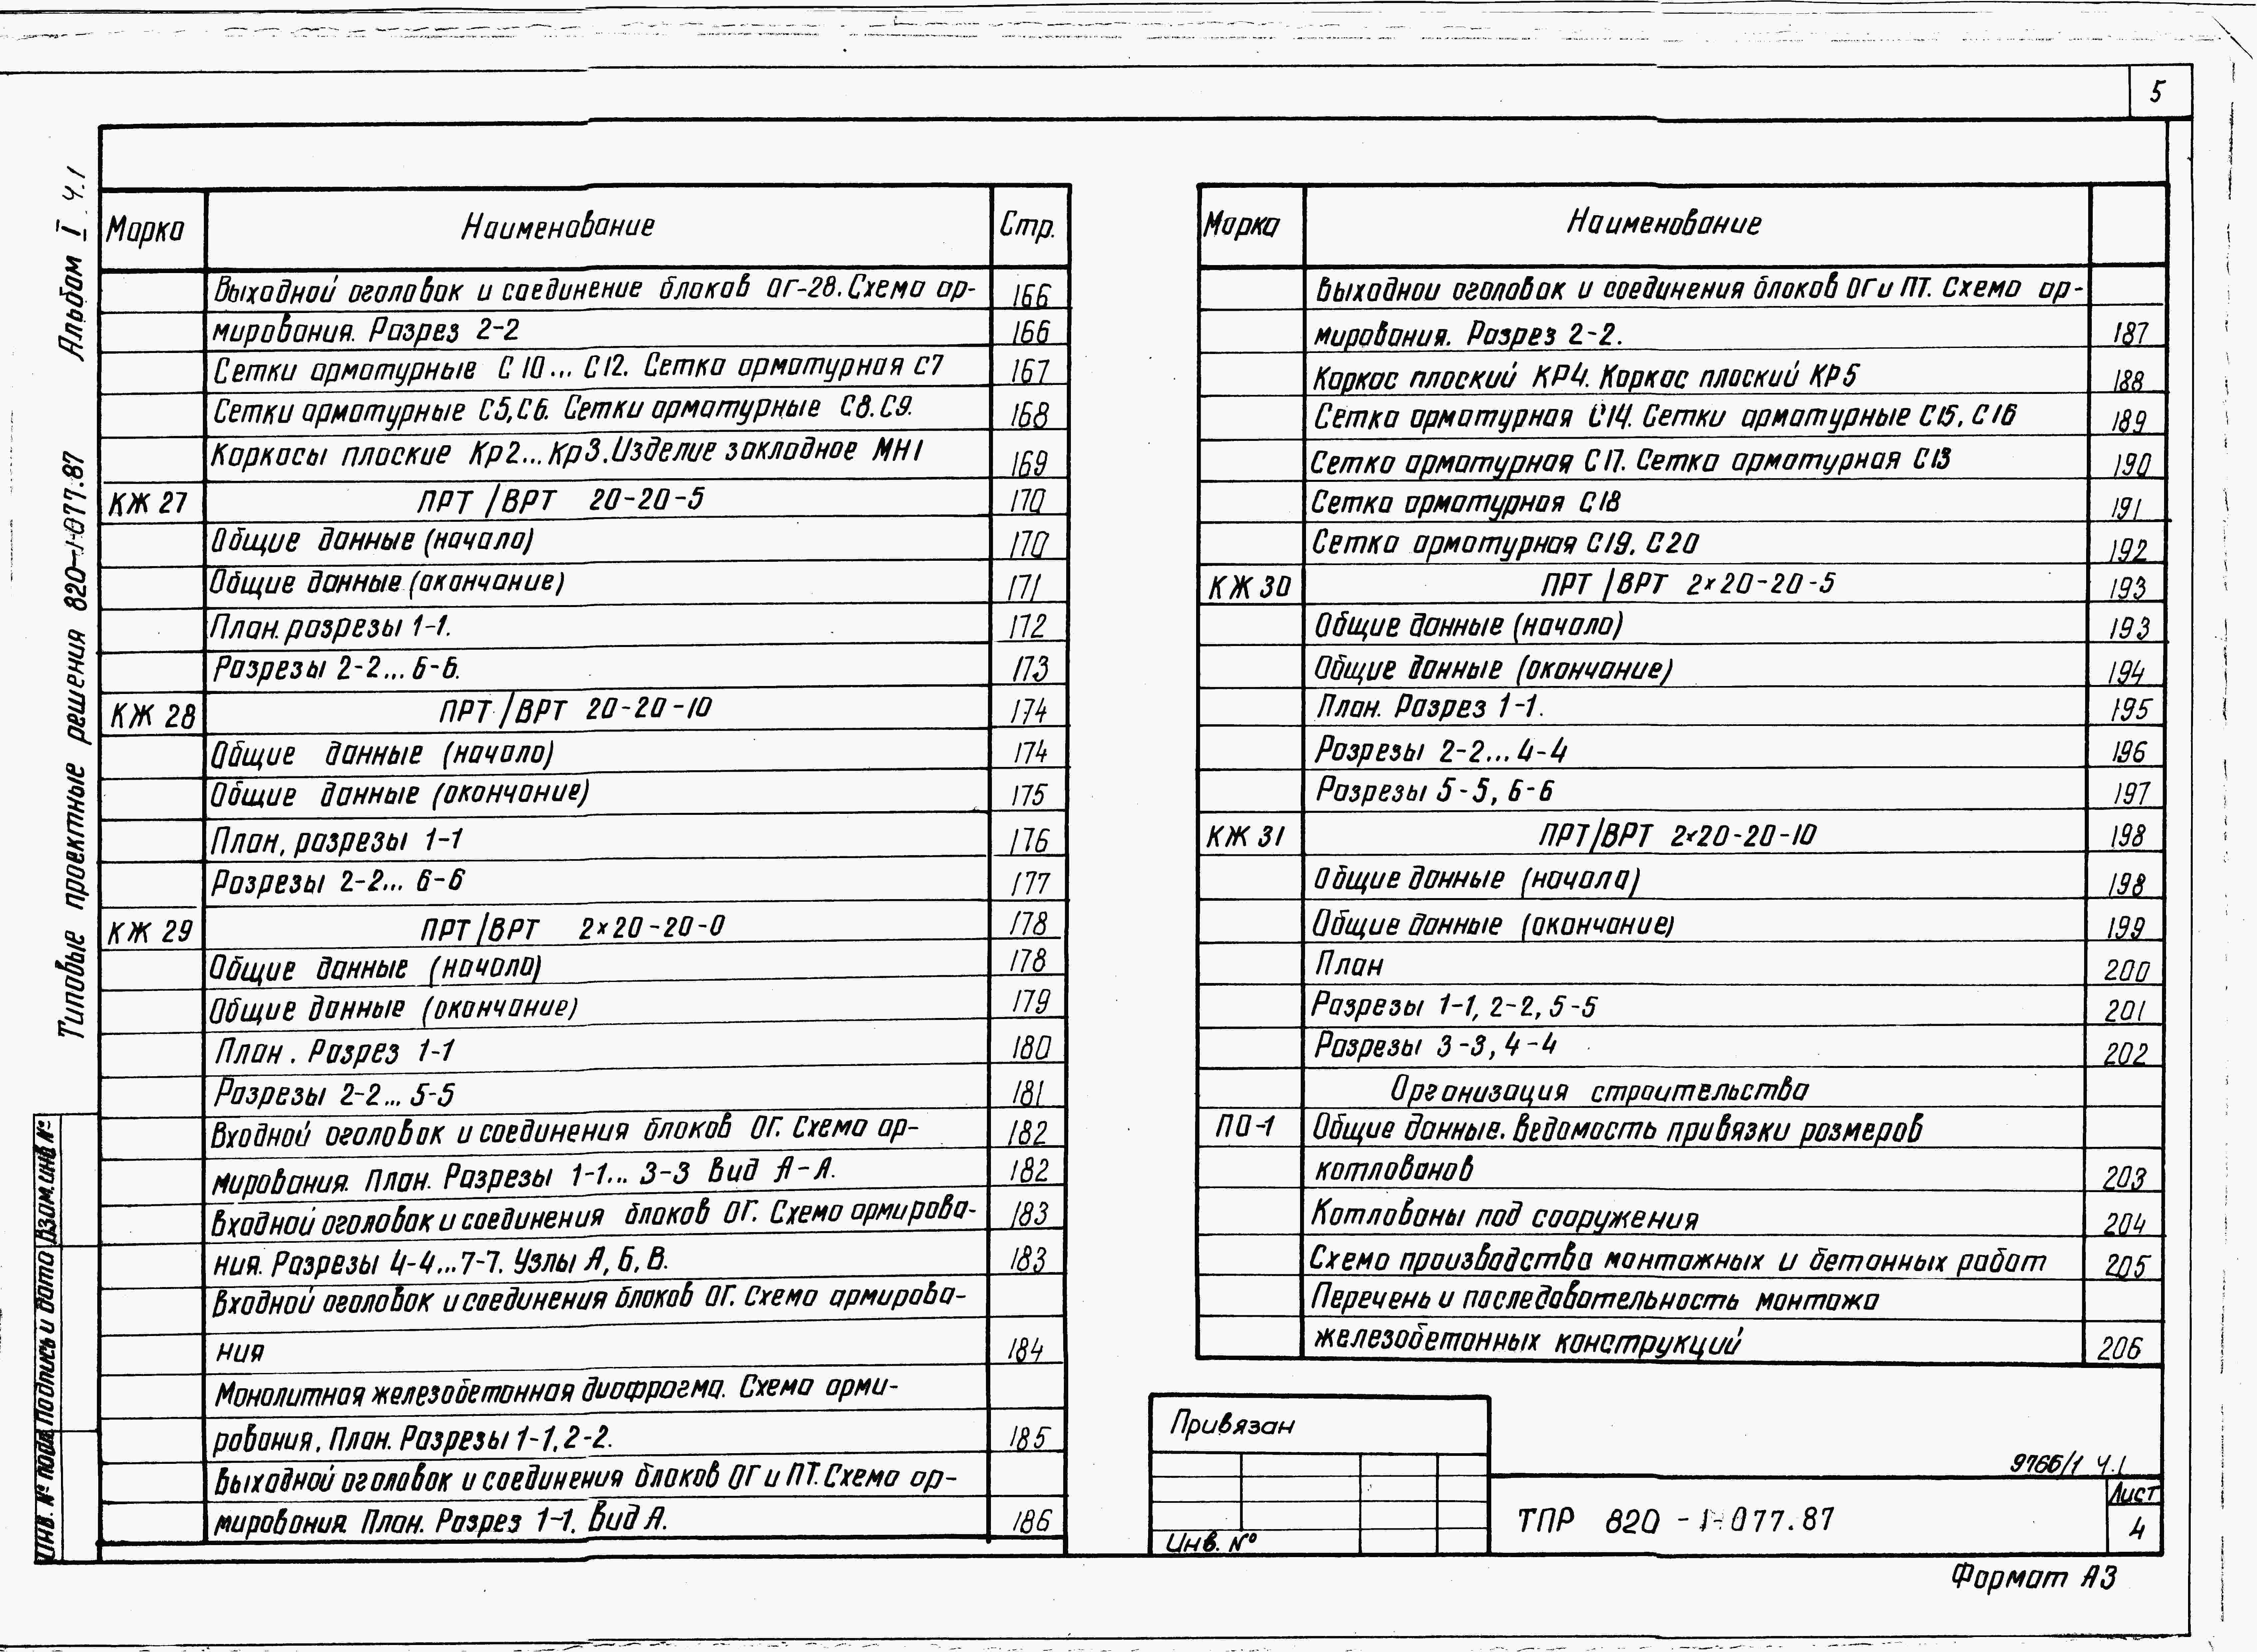 5
Альбом I ч.1
Типовые проектные решения 820-1-077.87
Марка Наименование Стр.
Выходной оголовок и соединение блоков ОГ-28. Схема ар- 166
мирования. Разрез 2-2 166
Сетки арматурные С10...С12. Сетка арматурная С7 167
Сетки арматурные С5, С6. Сетки арматурные С8. С9. 168
Каркасы плоские Кр2...Кр3. Изделие закладное МН1 169
КЖ 27 ПРТ/ВРТ 20-20-5 170
Общие данные (начало) 170
Общие данные (окончание) 171
План. разрезы 1-1. 172
Разрезы 2-2...6-6. 173
КЖ 28 ПРТ/ВРТ 20-20-10 174
Общие данные (начало) 174
Общие данные (окончание) 175
План, разрезы 1-1 176
Разрезы 2-2... 6-6 177
КЖ 29 ПРТ/ВРТ 2×20-20-0 178
Общие данные (начало) 178
Общие данные (окончание) 179
План. Разрез 1-1 180
Разрезы 2-2... 5-5 181
Входной оголовок и соединения блоков ОГ. Схема ар- 182
мирования. План. Разрезы 1-1... 3-3 Вид А-А. 182
Входной оголовок и соединения блоков ОГ. Схема армирова- 183
ния. Разрезы 4-4...7-7. Узлы А, Б, В. 183
Входной оголовок и соединения блоков ОГ. Схема армирова-
ния 184
Монолитная железобетонная диафрагма. Схема арми-
рования. План. Разрезы 1-1, 2-2. 185
Выходной оголовок и соединения блоков ОГ и ПТ. Схема ар-
мирования План. Разрез 1-1. Вид А. 186
Марка Наименование
Выходной оголовок и соединения блоков ОГ и ПТ. Схема ар-
мирования. Разрез 2-2. 187
Каркас плоский КР4. Каркас плоский КР5 188
Сетка арматурная С14. Сетки арматурные С15, С16 189
Сетка арматурная С17. Сетка арматурная С13 190
Сетка арматурная С18 191
Сетка арматурная С19. С20 192
КЖ 30 ПРТ/ВРТ 2×20-20-5 193
Общие данные (начало) 193
Общие данные (окончание) 194
План. Разрез 1-1. 195
Разрезы 2-2...4-4 196
Разрезы 5-5, 6-6 197
КЖ 31 ПРТ/ВРТ 2×20-20-10 198
Общие данные (начало) 198
Общие данные (окончание) 199
План 200
Разрезы 1-1, 2-2, 5-5 201
Разрезы 3-3, 4-4 202
Организация строительства
ПО-1 Общие данные. Ведомость привязки размеров
котлованов 203
Котлованы под сооружения 204
Схема производства монтажных и бетонных работ 205
Перечень и последовательность монтажа
железобетонных конструкций 206
Привязан
Инв. №
9766/1 Ч.1
ТПР 820-1-077.87
Лист
4
Формат А3
Взам. инв №
Подпись и дата
Инв. № подл